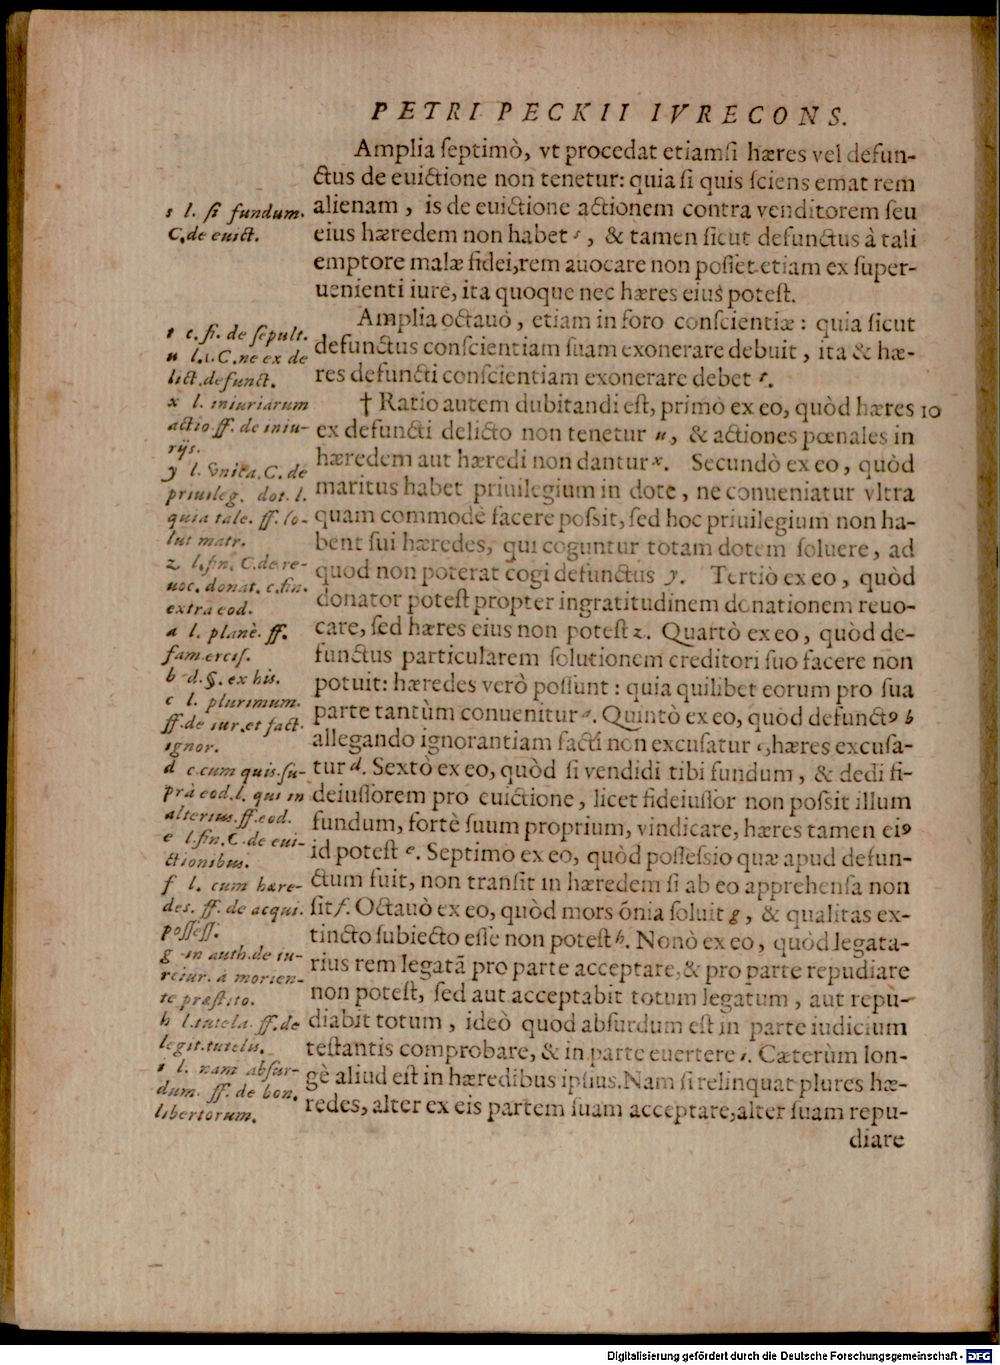 PETRI PECKII IVRECONS.
Amplia ſeptimò, vt procedat etiamſi hæres vel defun-
ctus de euictione non tenetur: quia ſi quis ſciens emat rem
alienam, is de euictione actionem contra venditorem ſeu
eius hæredem non habet ſ, & tamen ſicut defunctus à tali
emptore malæ fidei, rem auocare non poſſet etiam ex ſuper-
uenienti iure, ita quoque nec hæres eius poteſt.
Amplia octauò, etiam in foro conſcientiæ: quia ſicut
defunctus conſcientiam ſuam exonerare debuit, ita & hæ-
res defuncti conſcientiam exonerare debet t.
† Ratio autem dubitandi eſt, primò ex eo, quòd hæres 10
ex defuncti delicto non tenetur u, & actiones pœnales in
hæredem aut hæredi non dantur x. Secundò ex eo, quòd
maritus habet priuilegium in dote, ne conueniatur vltra
quam commodè facere poſsit, ſed hoc priuilegium non ha-
bent ſui hæredes, qui coguntur totam dotem ſoluere, ad
quod non poterat cogi defunctus y. Tertiò ex eo, quòd
donator poteſt propter ingratitudinem donationem reuo-
care, ſed hæres eius non poteſt z. Quartò ex eo, quòd de-
functus particularem ſolutionem creditori ſuo facere non
potuit: hæredes verò poſſunt: quia quilibet eorum pro ſua
parte tantùm conuenitur a. Quintò ex eo, quòd defunctꝰ b
allegando ignorantiam facti non excuſatur c, hæres excuſa-
tur d. Sextò ex eo, quòd ſi vendidi tibi fundum, & dedi fi-
deiuſſorem pro euictione, licet fideiuſſor non poſsit illum
fundum, fortè ſuum proprium, vindicare, hæres tamen eiꝰ
id poteſt e. Septimo ex eo, quòd poſſeſsio quæ apud defun-
ctum fuit, non tranſit in hæredem ſi ab eo apprehenſa non
ſit f. Octauò ex eo, quòd mors õnia ſoluit g, & qualitas ex-
tincto ſubiecto eſſe non poteſt h. Nonò ex eo, quòd legata-
rius rem legatã pro parte acceptare, & pro parte repudiare
non poteſt, ſed aut acceptabit totum legatum, aut repu-
diabit totum, ideò quod abſurdum eſt in parte iudicium
teſtantis comprobare, & in parte euertere i. Cæterùm lon-
gè aliud eſt in hæredibus ipſius. Nam ſi relinquat plures hæ-
redes, alter ex eis partem ſuam acceptare, alter ſuam repu-
diare
s l. ſi fundum.
C. de euict.
t c. fi. de ſepult.
u l. 1. C. ne ex de
lict. defunct.
x l. iniuriarum
actio. ff. de iniu-
rijs.
y l. vnita. C. de
priuileg. dot. l.
quia tale. ff. ſo-
lut matr.
z l. fin. C. de re-
uoc. donat. c. fin.
extra eod.
a l. planè. ff.
fam. erciſ.
b d. §. ex his.
c l. plurimum.
ff. de iur. et fact.
ignor.
d c. cum quis. ſu-
prà eod. l. qui in
alterius. ff. eod.
e l. fin. C. de eui-
ctionibus.
f l. cum hære-
des. ff. de acqui.
poſſeſſ.
g in auth. de iu-
reiur. à morien-
te præſtito.
h l. tutela. ff. de
legit. tutelis.
i l. nam abſur-
dum. ff. de bon.
libertorum.
Digitalisierung gefördert durch die Deutsche Forschungsgemeinschaft - DFG